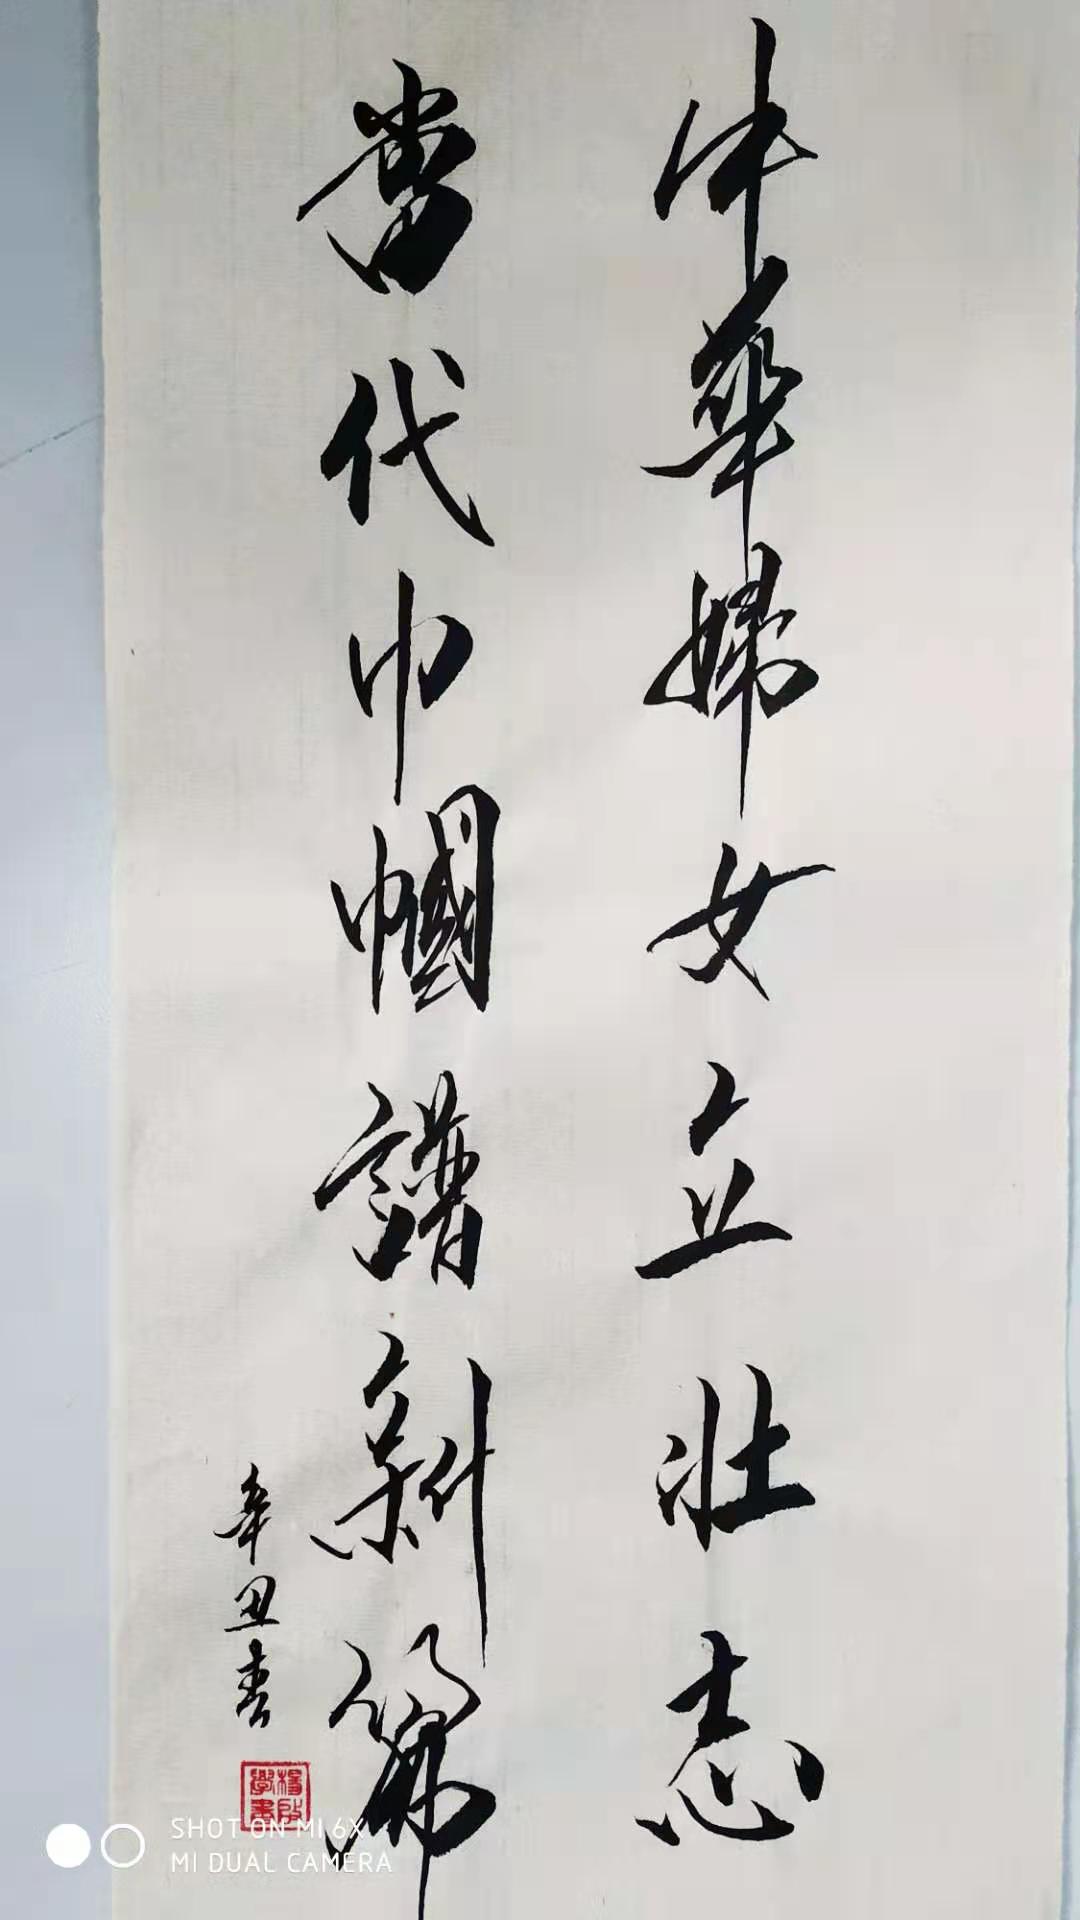 中華婦女立壯志
當代巾幗譜新篇
辛丑春
楊啟學書
SHOT ON MI 6X
MI DUAL CAMERA